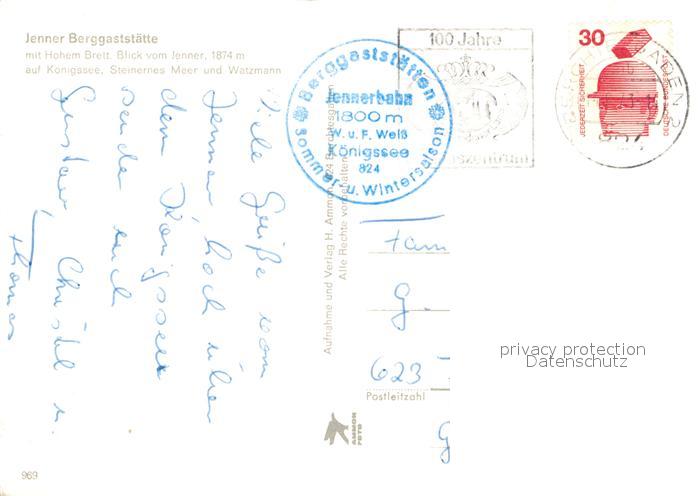 Jenner Berggaststätte
mit Hohem Brett. Blick vom Jenner, 1874 m
auf Königssee, Steinernes Meer und Watzmann
Viele Grüße vom
Jenner, hoch über
dem Königssee
sendet euch
Gustav, Christl u.
Thomas
Berggaststätten
Jennerbahn
1800 m
W. u. F. Weiß
Königssee
824
Sommer- u. Wintersaison
100 Jahre
30
JEDERZEIT SICHERHEIT
DEUTSCHE BUNDESPOST
Aufnahme und Verlag H. Ammon, 824 Berchtesgaden
Alle Rechte vorbehalten
Fam
G.
623
Postleitzahl
AMMON
FOTO
privacy protection
Datenschutz
969